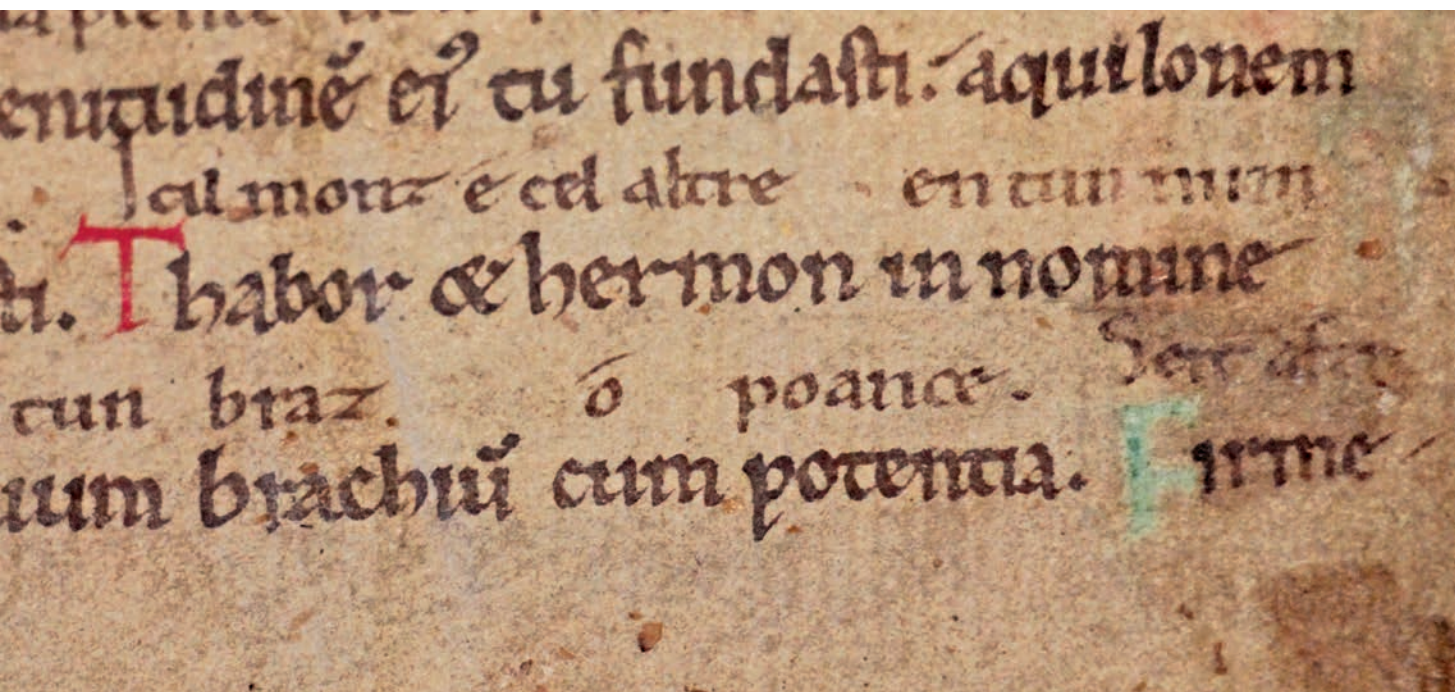 enitudinē eiꝰ tu fundasti. aquilonem
cil mont e cel altre en tun num
sti. Thabor & hermon in nomine
tun braz o poance. Seit
uum brachiū cum potentia. Firme